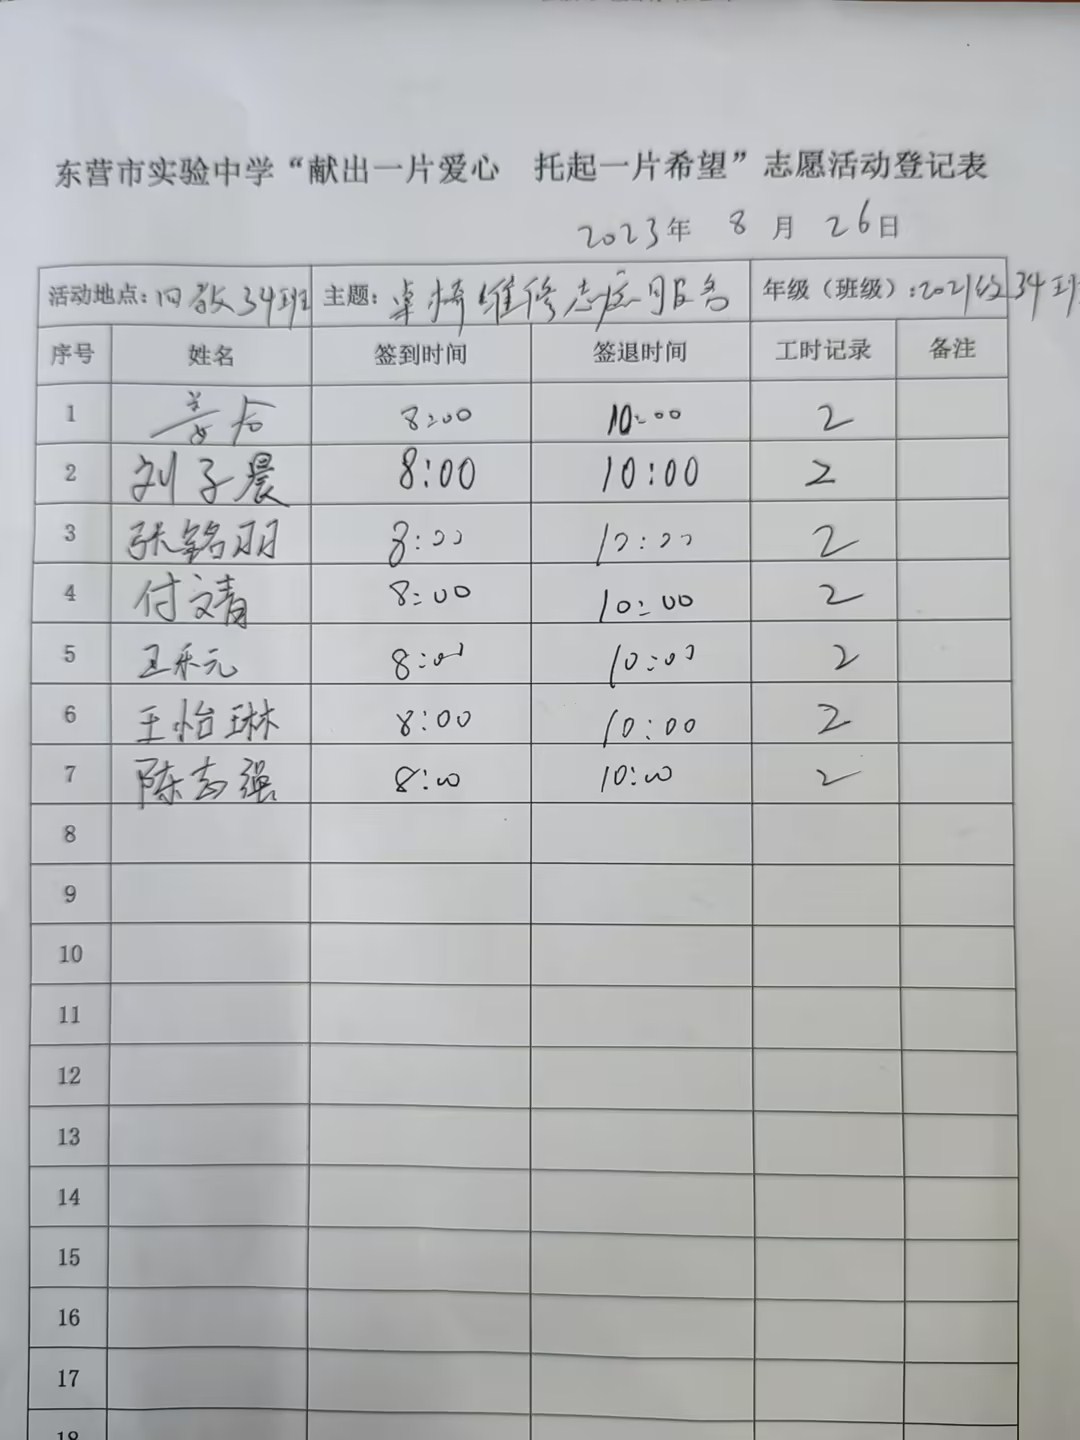 东营市实验中学“献出一片爱心 托起一片希望”志愿活动登记表
2023年 8 月 26日
活动地点：四教34班 主题：桌椅维修志愿服务 年级（班级）：2021级34班
序号 姓名 签到时间 签退时间 工时记录 备注
1 8:00 10:00 2
2 刘子晨 8:00 10:00 2
3 张铭羽 8:00 10:00 2
4 付文青 8:00 10:00 2
5 王乐元 8:00 10:00 2
6 王怡琳 8:00 10:00 2
7 陈志强 8:00 10:00 2
8
9
10
11
12
13
14
15
16
17
18